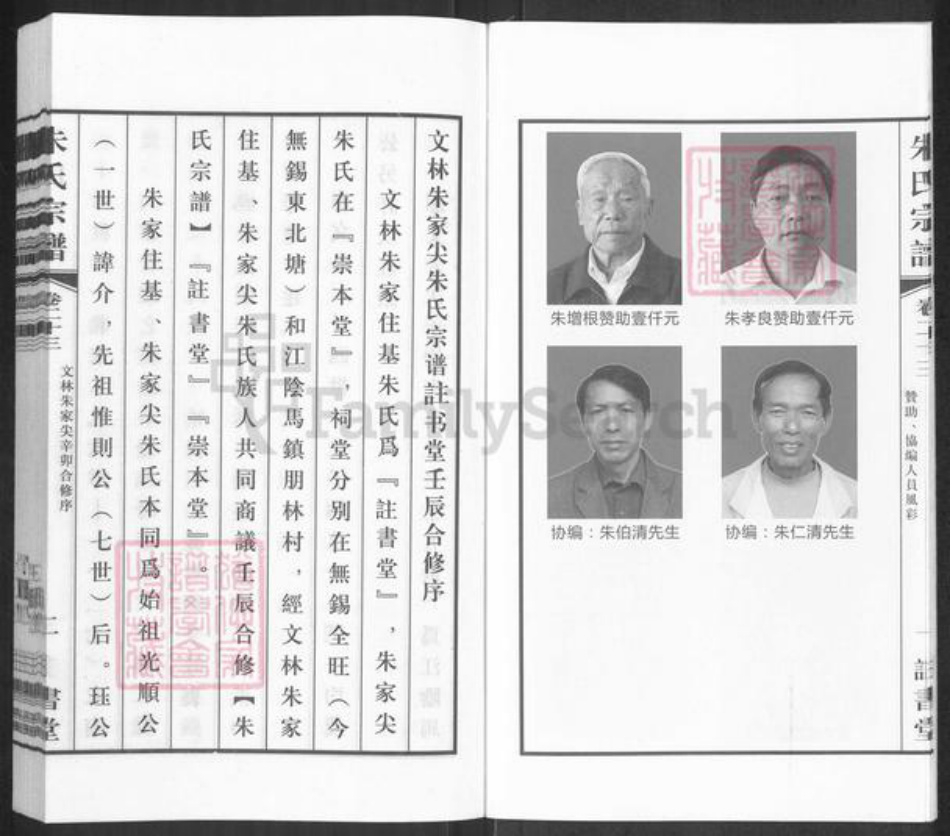 朱氏宗譜
卷二十三
贊助、協編人員風彩
一
註書堂
朱孝良赞助壹仟元
朱增根赞助壹仟元
协编：朱仁清先生
协编：朱伯清先生
文林朱家尖朱氏宗谱註书堂壬辰合修序
文林朱家住基朱氏爲『註書堂』，朱家尖
朱氏在『崇本堂』，祠堂分别在無錫全旺（今
無錫東北塘）和江陰馬鎮朋林村，經文林朱家
住基、朱家尖朱氏族人共同商議壬辰合修【朱
氏宗譜】『註書堂』『崇本堂』。
朱家住基、朱家尖朱氏本同爲始祖光順公
（一世）諱介，先祖惟則公（七世）后。珏公
朱氏宗譜
卷二十三
文林朱家尖辛卯合修序
書堂
FamilySearch